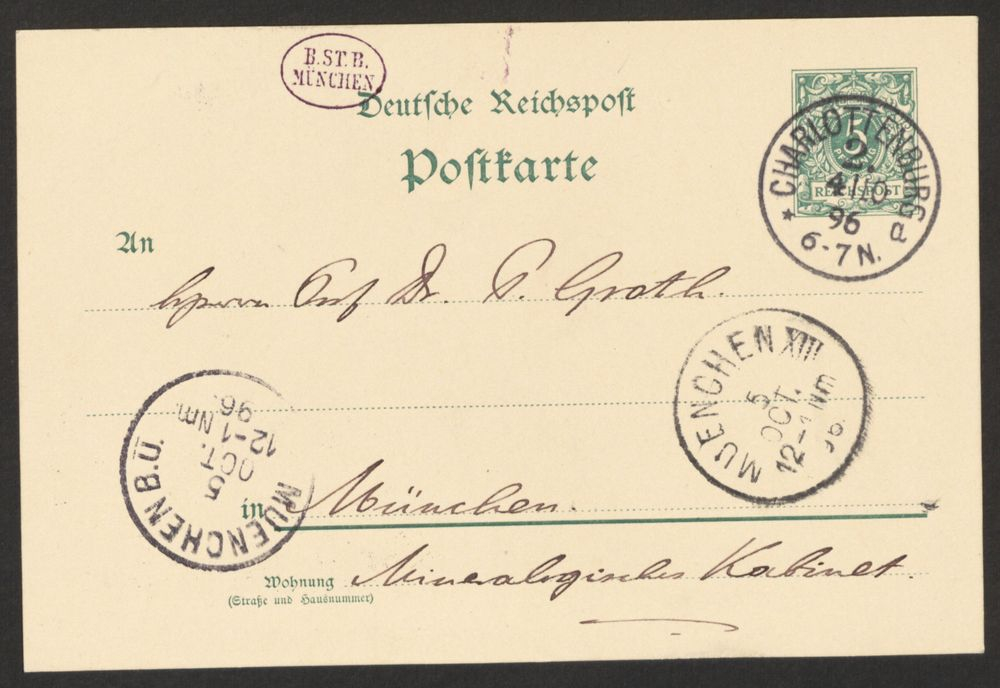 B. ST. B.
MÜNCHEN
Deutsche Reichspost
Postkarte
5
REICHSPOST
CHARLOTTENBURG
2.
4/10
96
6-7 N.
An
Herrn Prof Dr. P. Groth.
MUENCHEN XIII
5
OCT.
12-1 Nm
96.
MUENCHEN B.Ü.
5
OCT.
12-1 Nm.
96.
in München.
Wohnung Mineralogisches Kabinet.
(Straße und Hausnummer)